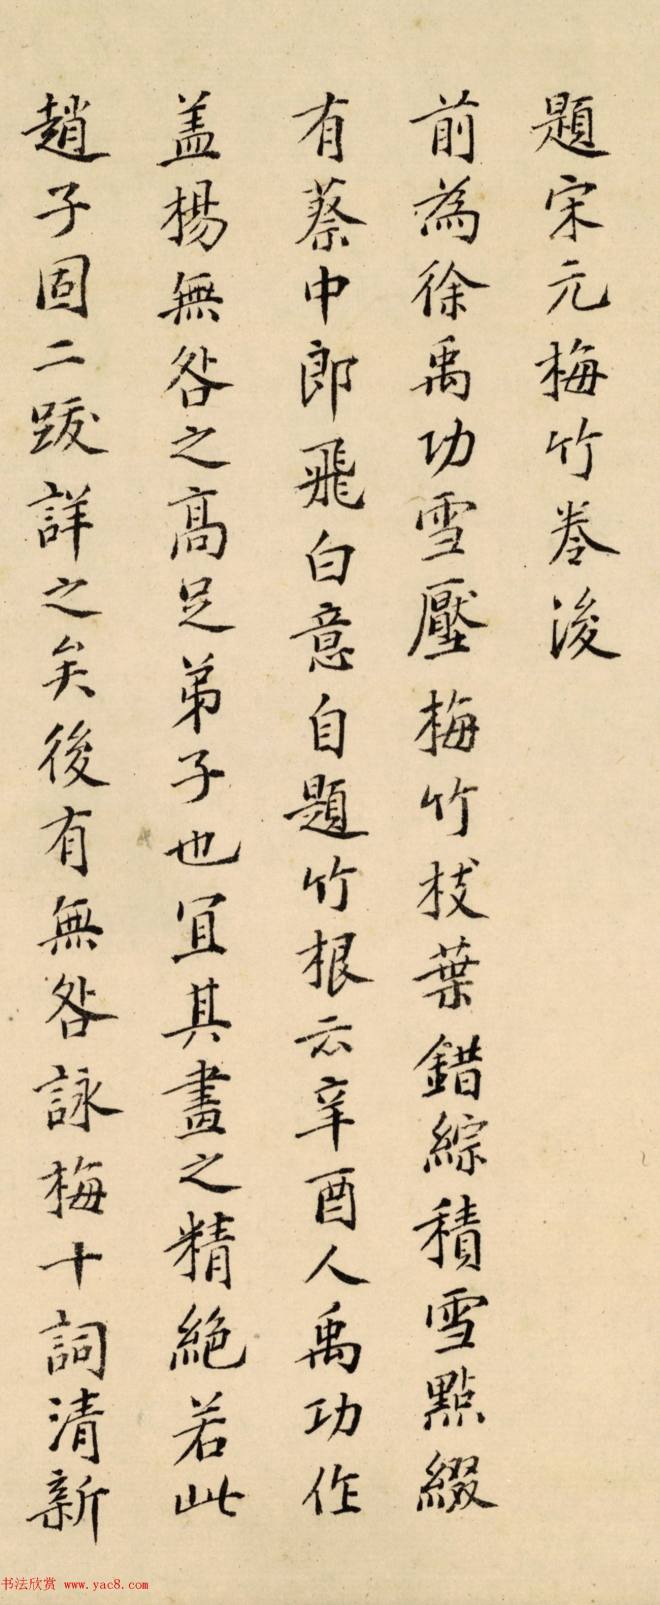 題宋元梅竹卷後
前為徐禹功雪壓梅竹枝葉錯綜積雪點綴
有蔡中郎飛白意自題竹根云辛酉人禹功作
盖楊無咎之高足弟子也宜其畫之精絕若此
趙子固二跋詳之矣後有無咎詠梅十詞清新
书法欣赏 www.yac8.com